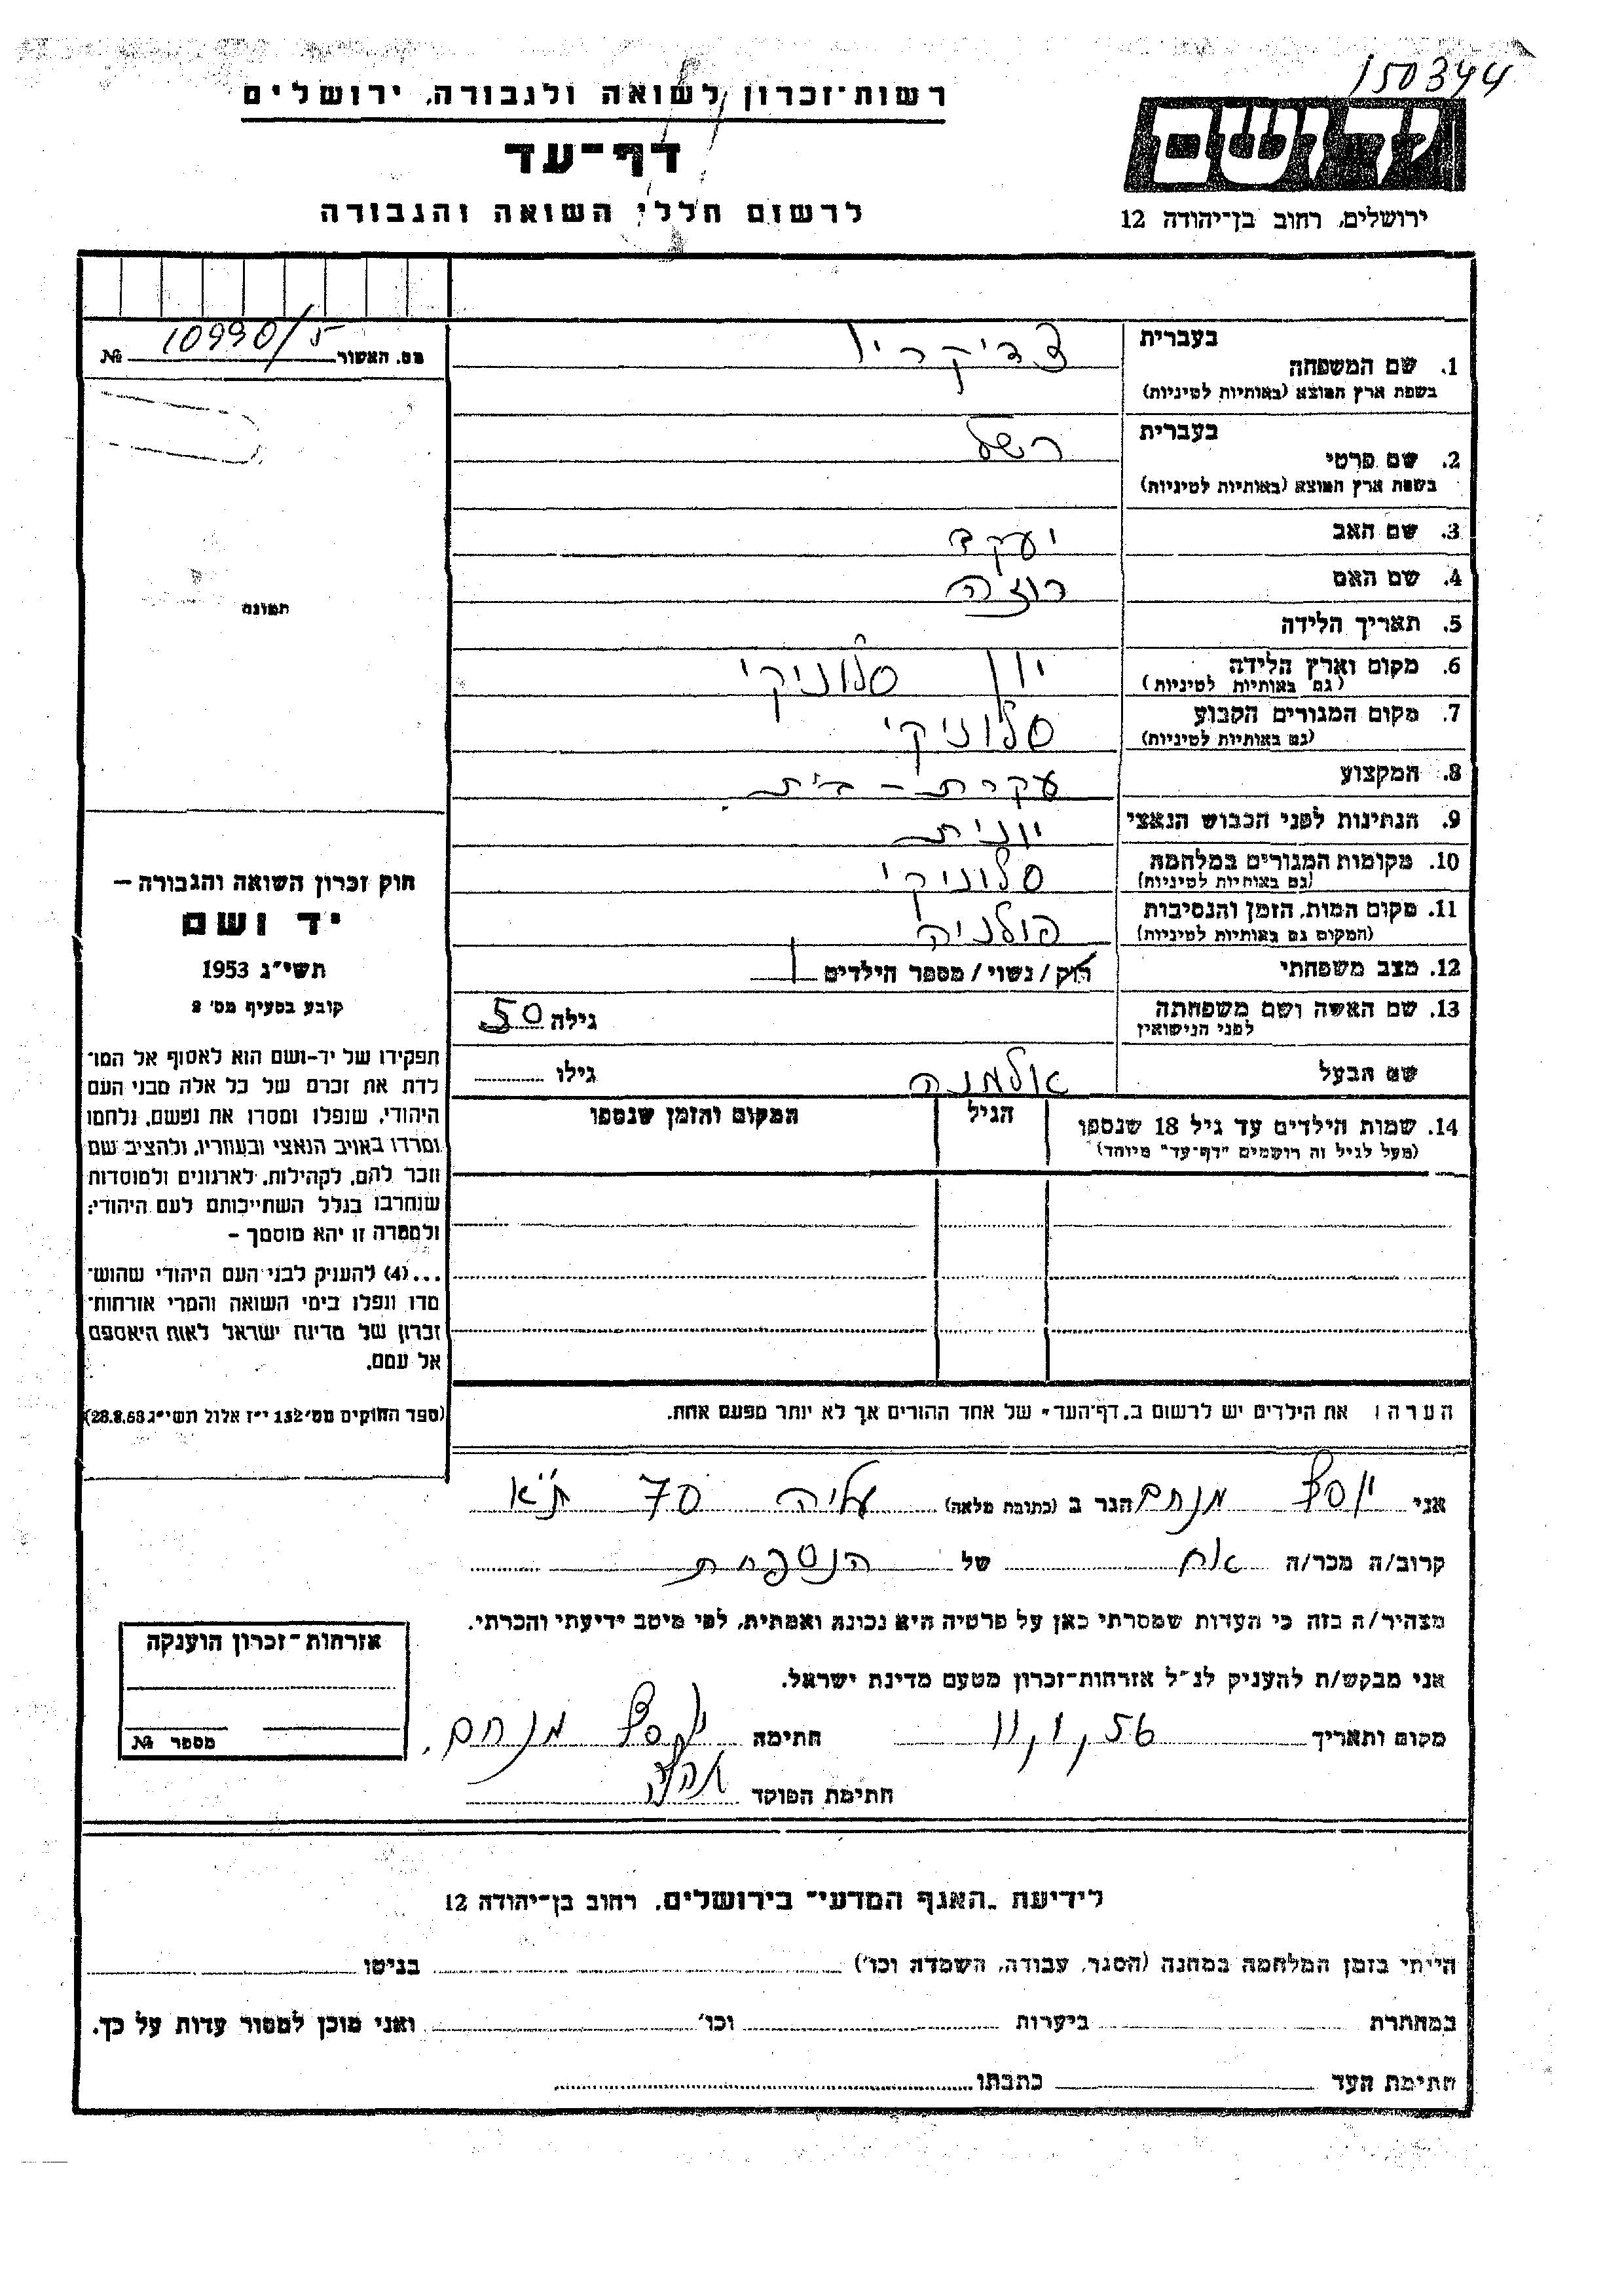 150344
רשות־זכרון לשואה ולגבורה, ירושלים
דף־עד
לרשום חללי השואה והגבורה
יד ושם
ירושלים, רחוב בן־יהודה 12
מס. האשור № 10990/5
בעברית
1. שם המשפחה
בשפת ארץ המוצא (באותיות לטיניות)
בעברית רשל
2. שם פרטי
בשפת ארץ המוצא (באותיות לטיניות)
3. שם האב יעקב
4. שם האם רוזה
5. תאריך הלידה
6. מקום וארץ הלידה יון סלוניקי
(גם באותיות לטיניות)
7. מקום המגורים הקבוע סלוניקי
(גם באותיות לטיניות)
8. המקצוע עקרת - בית
9. הנתינות לפני הכבוש הנאצי יונית
10. מקומות המגורים במלחמה סלוניקי
(גם באותיות לטיניות)
11. מקום המות, הזמן והנסיבות פולניה
(המקום גם באותיות לטיניות)
12. מצב משפחתי רוק/נשוי/מספר הילדים 1
13. שם האשה ושם משפחתה גילה 50
לפני הנישואין
שם הבעל אלמנה גילו
14. שמות הילדים עד גיל 18 שנספו הגיל המקום והזמן שנספו
(מעל לגיל זה רושמים "דף־עד" מיוחד)
הערה: את הילדים יש לרשום ב„דף־העד" של אחד ההורים אך לא יותר מפעם אחת.
תמונה
חוק זכרון השואה והגבורה –
יד ושם
תשי"ג 1953
קובע בסעיף מס' 2
תפקידו של יד-ושם הוא לאסוף אל המו־
לדת את זכרם של כל אלה מבני העם
היהודי, שנפלו ומסרו את נפשם, נלחמו
ומרדו באויב הנאצי ובעוזריו, ולהציב שם
וזכר להם, לקהילות, לארגונים ולמוסדות
שנחרבו בגלל השתייכותם לעם היהודי;
ולמטרה זו יהא מוסמך –
...(4) להעניק לבני העם היהודי שהוש־
מדו ונפלו בימי השואה והמרי אזרחות־
זכרון של מדינת ישראל לאות היאספם
אל עמם.
(ספר החוקים מס' 132 י"ז אלול תשי"ג 28.8.53)
אני יוסף מנחם הגר ב (כתובת מלאה) עליה 70 ת"א
קרוב/ה מכר/ה אח של הנספחת
מצהיר/ה בזה כי העדות שמסרתי כאן על פרטיה היא נכונה ואמתית, לפי מיטב ידיעתי והכרתי.
אני מבקש/ת להעניק לנ"ל אזרחות־זכרון מטעם מדינת ישראל.
מקום ותאריך 11,1,56 חתימה יוסף מנחם.
חתימת הפוקד
אזרחות־זכרון הוענקה
מספר №
לידיעת „האגף המדעי" בירושלים, רחוב בן־יהודה 12
הייתי בזמן המלחמה במחנה (הסגר, עבודה, השמדה וכו') בגיטו
במחתרת ביערות וכו' ואני מוכן למסור עדות על כך.
חתימת העד כתבתו